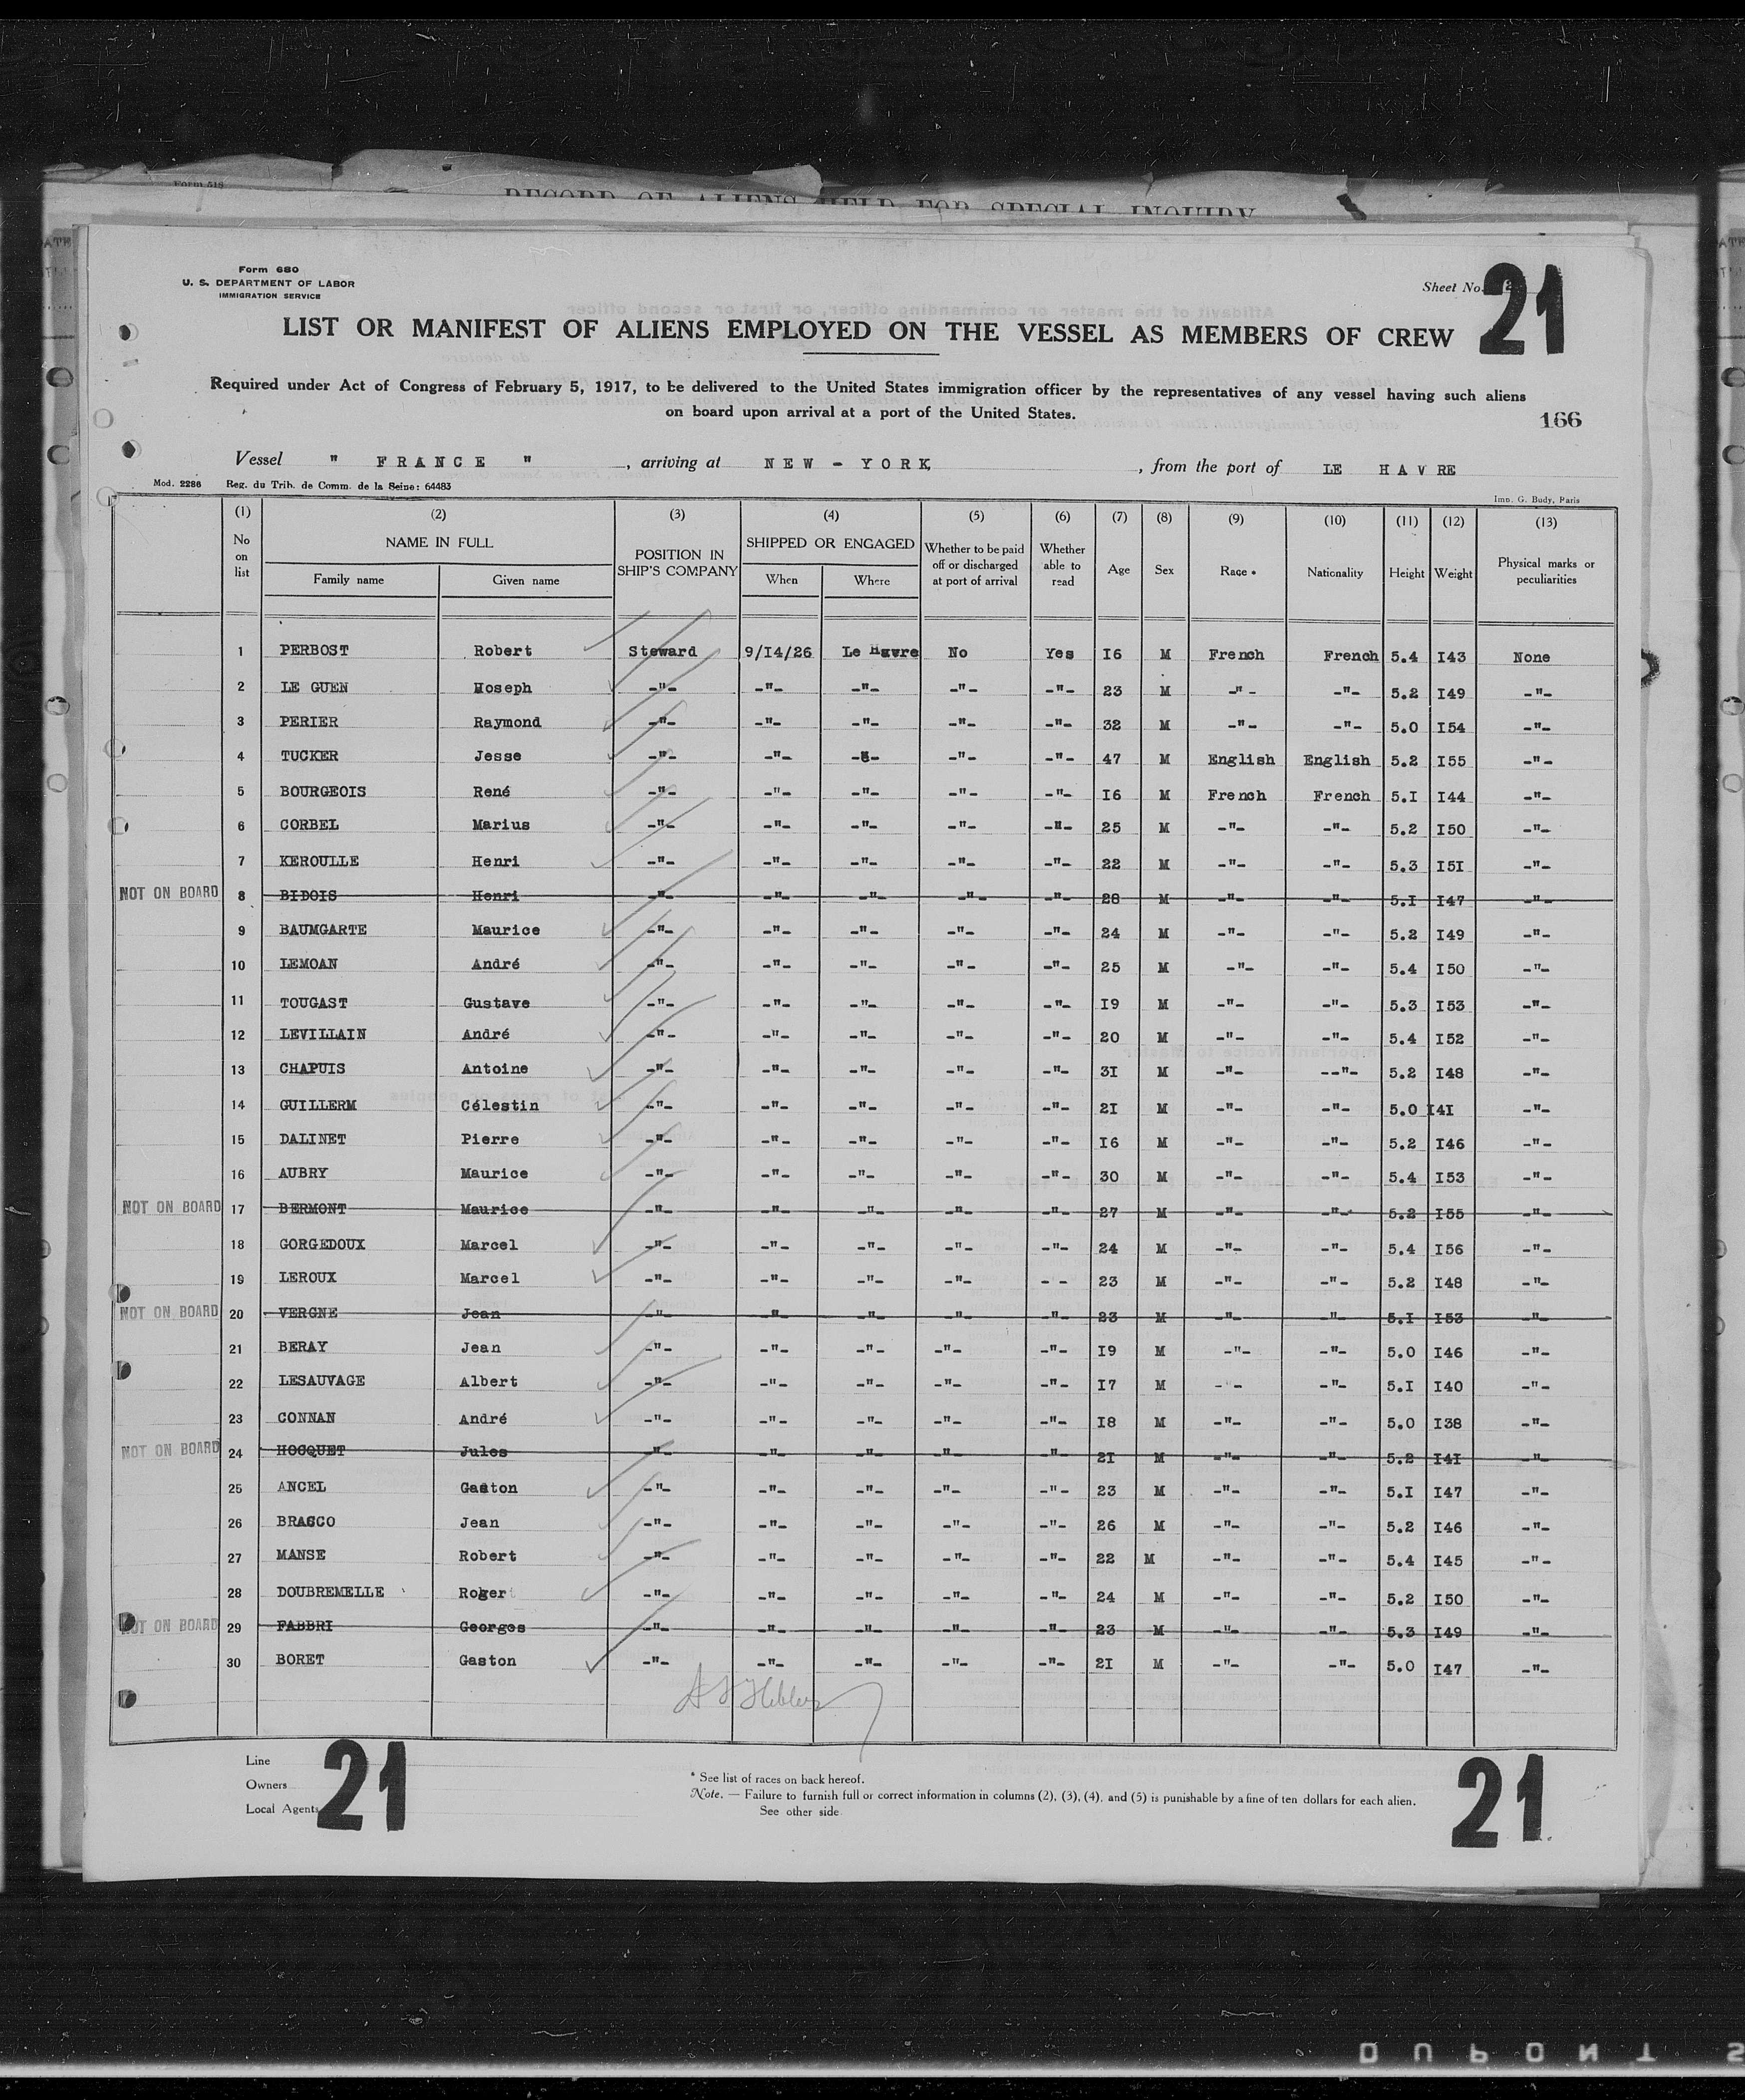 Form 519
RECORD OF ALIENS HELD FOR SPECIAL INQUIRY
Form 680
U. S. DEPARTMENT OF LABOR
IMMIGRATION SERVICE
Sheet No.
21
LIST OR MANIFEST OF ALIENS EMPLOYED ON THE VESSEL AS MEMBERS OF CREW
Required under Act of Congress of February 5, 1917, to be delivered to the United States immigration officer by the representatives of any vessel having such aliens
on board upon arrival at a port of the United States.
166
Vessel " FRANCE " , arriving at NEW - YORK , from the port of LE HAVRE
Mod. 2286 Reg. du Trib. de Comm. de la Seine: 64483
Imp. G. Budy, Paris
(1) (2) (3) (4) (5) (6) (7) (8) (9) (10) (11) (12) (13)
No on list NAME IN FULL POSITION IN SHIP'S COMPANY SHIPPED OR ENGAGED Whether to be paid off or discharged at port of arrival Whether able to read Age Sex Race * Nationality Height Weight Physical marks or peculiarities
Family name Given name When Where
1 PERBOST Robert Steward 9/I4/26 Le Havre No Yes I6 M French French 5.4 I43 None
2 LE GUEN Hoseph -"- -"- -"- -"- -"- 23 M -"- -"- 5.2 I49 -"-
3 PERIER Raymond -"- -"- -"- -"- -"- 32 M -"- -"- 5.0 I54 -"-
4 TUCKER Jesse -"- -"- -"- -"- -"- 47 M English English 5.2 I55 -"-
5 BOURGEOIS René -"- -"- -"- -"- -"- I6 M French French 5.I I44 -"-
6 CORBEL Marius -"- -"- -"- -"- -"- 25 M -"- -"- 5.2 I50 -"-
7 KEROULLE Henri -"- -"- -"- -"- -"- 22 M -"- -"- 5.3 I5I -"-
NOT ON BOARD 8 BIDOIS Henri -"- -"- -"- -"- -"- 28 M -"- -"- 5.I I47 -"-
9 BAUMGARTE Maurice -"- -"- -"- -"- -"- 24 M -"- -"- 5.2 I49 -"-
10 LEMOAN André -"- -"- -"- -"- -"- 25 M -"- -"- 5.4 I50 -"-
11 TOUGAST Gustave -"- -"- -"- -"- -"- I9 M -"- -"- 5.3 I53 -"-
12 LEVILLAIN André -"- -"- -"- -"- -"- 20 M -"- -"- 5.4 I52 -"-
13 CHAPUIS Antoine -"- -"- -"- -"- -"- 3I M -"- --"- 5.2 I48 -"-
14 GUILLERM Célestin -"- -"- -"- -"- -"- 2I M -"- -"- 5.0 I4I -"-
15 DALINET Pierre -"- -"- -"- -"- -"- I6 M -"- -"- 5.2 I46 -"-
16 AUBRY Maurice -"- -"- -"- -"- -"- 30 M -"- -"- 5.4 I53 -"-
NOT ON BOARD 17 BERMONT Maurice -"- -"- -"- -"- -"- 27 M -"- -"- 5.2 I55 -"-
18 GORGEDOUX Marcel -"- -"- -"- -"- -"- 24 M -"- -"- 5.4 I56 -"-
19 LEROUX Marcel -"- -"- -"- -"- - - 23 M -"- -"- 5.2 I48 -"-
NOT ON BOARD 20 VERGNE Jean -"- -"- -"- -"- -"- 23 M -"- -"- 5.I I53 -"-
21 BERAY Jean -"- -"- -"- -"- -"- I9 M -"- -"- 5.0 I46 -"-
22 LESAUVAGE Albert -"- -"- -"- -"- -"- I7 M -"- -"- 5.I I40 -"-
23 CONNAN André -"- -"- -"- -"- -"- I8 M -"- -"- 5.0 I38 -"-
NOT ON BOARD 24 HOCQUET Jules -"- -"- -"- -"- -"- 2I M -"- -"- 5.2 I4I -"-
25 ANCEL Gaston -"- -"- -"- -"- -"- 23 M -"- -"- 5.I I47 -"-
26 BRASCO Jean -"- -"- -"- -"- -"- 26 M -"- -"- 5.2 I46 -"-
27 MANSE Robert -"- -"- -"- -"- -"- 22 M -"- -"- 5.4 I45 -"-
28 DOUBREMELLE Roger -"- -"- -"- -"- -"- 24 M -"- -"- 5.2 I50 -"-
NOT ON BOARD 29 FABBRI Georges -"- -"- -"- -"- -"- 23 M -"- -"- 5.3 I49 -"-
30 BORET Gaston -"- -"- -"- -"- -"- 2I M -"- -"- 5.0 I47 -"-
Line
Owners
Local Agents
21
* See list of races on back hereof.
Note. — Failure to furnish full or correct information in columns (2), (3), (4), and (5) is punishable by a fine of ten dollars for each alien.
See other side
21
DUPONT S